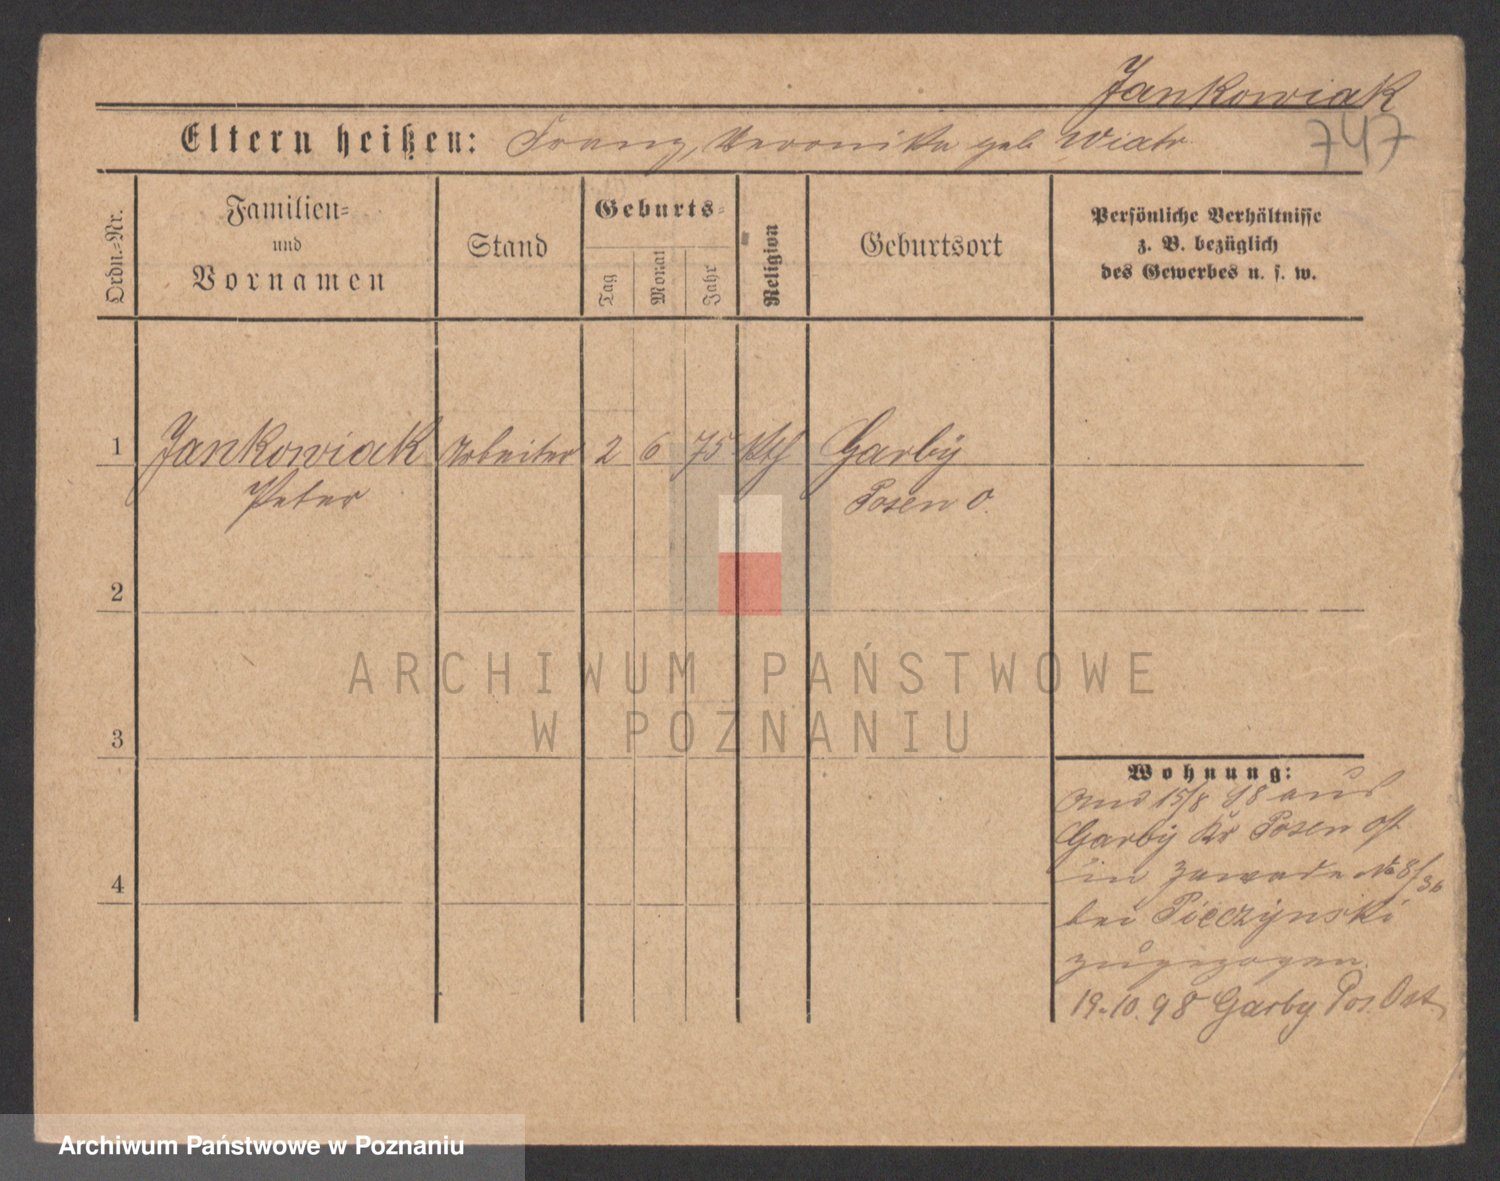 Jankowiak
747
Eltern heißen: Franz, Veronika geb Wiatr
Ordn.-Nr.
Familien-
und
Vornamen
Stand
Geburts-
Tag
Monat
Jahr
Religion
Geburtsort
Persönliche Verhältnisse
z. B. bezüglich
des Gewerbes u. s. w.
1 Jankowiak Arbeiter 2 6 75 kth Garby
Peter Posen O.
2
3
4
Wohnung:
15/8 98 aus
Garby Kr Posen Ost
in Zawade No 8/36
bei Pieczynski
zugezogen.
19.10.98 Garby Pos. Ost
ARCHIWUM PAŃSTWOWE
W POZNANIU
Archiwum Państwowe w Poznaniu